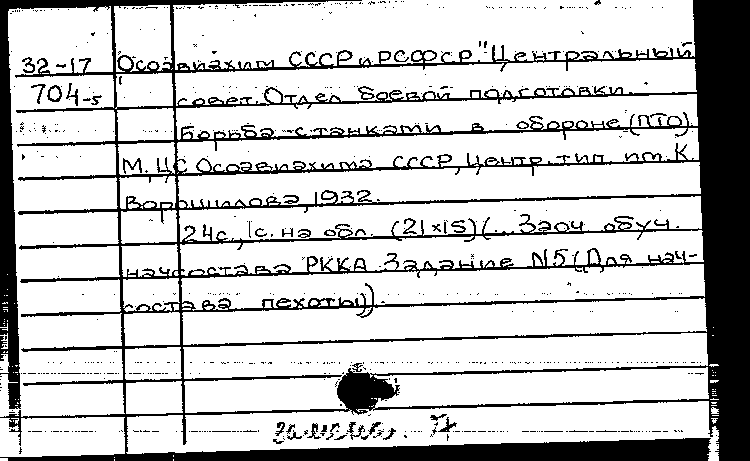 32-17 Осоавиахим СССР и РСФСР. "Центральный
704-5 совет. Отдел боевой подготовки.
Борьба с танками в обороне (ПТО)
М. ЦС Осоавиахима СССР, Центр. тип. им. К.
Ворошилова, 1932.
24с., 1с. на обл. (21×15) (... Заоч. обуч.
начсостава РККА. Задание N5 (Для нач-
состава пехоты)).